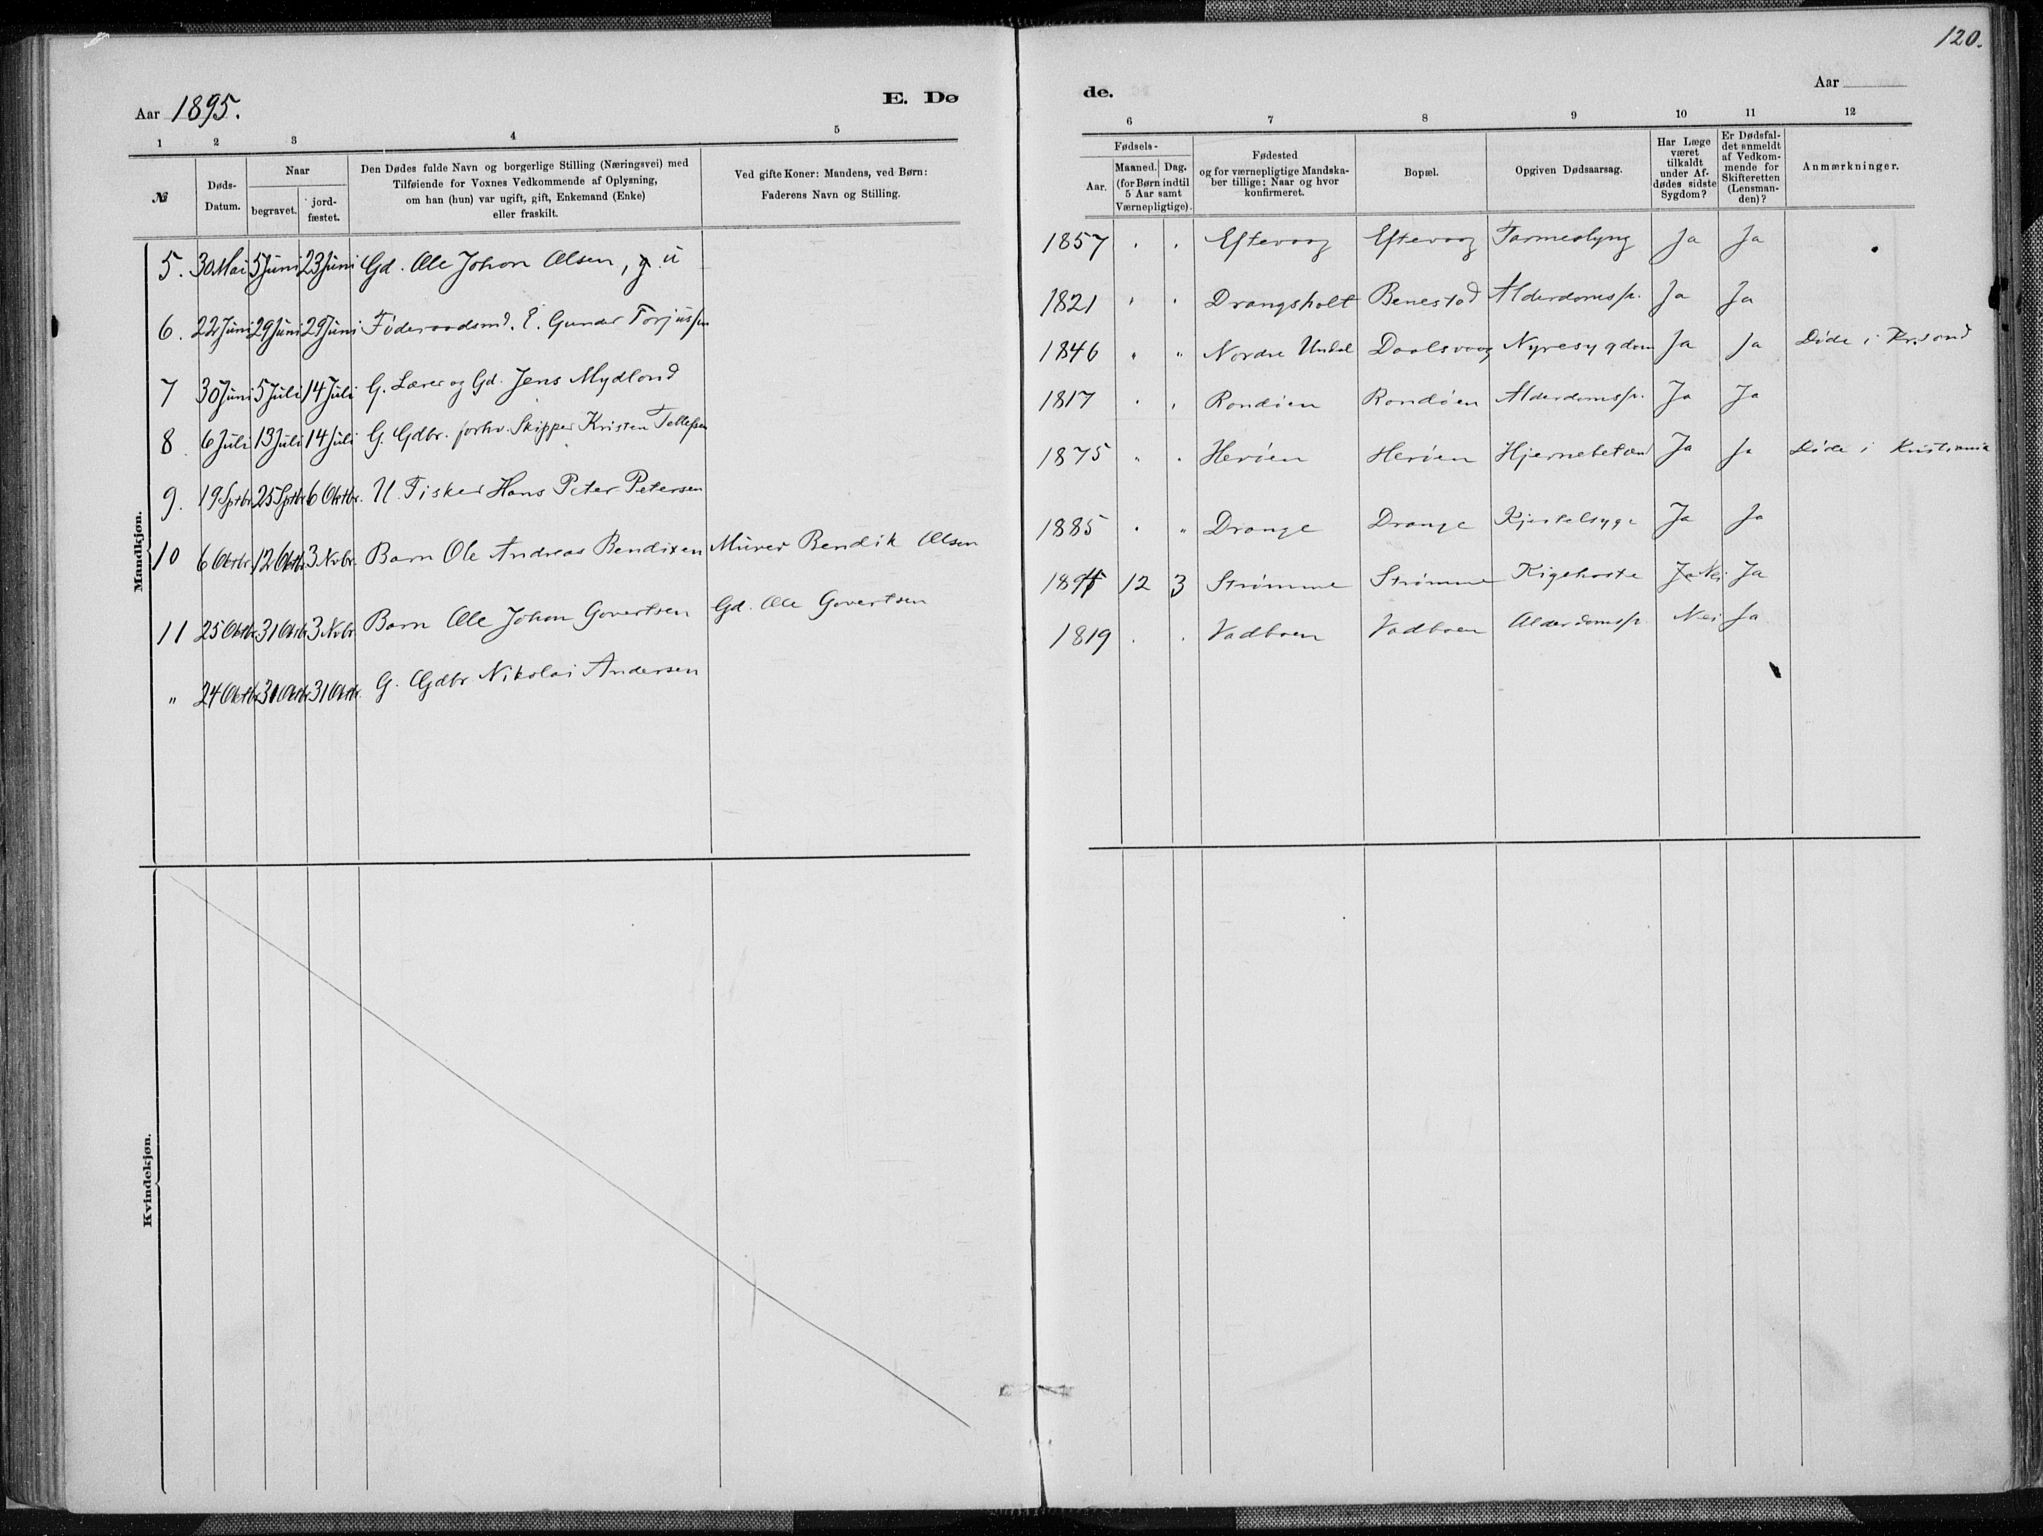 120.
Aar 1895.
E. Dø
de.
Aar
1 2 3 4 5
6 7 8 9 10 11 12
№
Døds-Datum.
Naar
begravet.
jord-fæstet.
Den Dødes fulde Navn og borgerlige Stilling (Næringsvei) med
Tilføiende for Voxnes Vedkommende af Oplysning,
om han (hun) var ugift, gift, Enkemand (Enke)
eller fraskilt.
Ved gifte Koner: Mandens, ved Børn:
Faderens Navn og Stilling.
Fødsels-
Aar.
Maaned. Dag.
(for Børn indtil
5 Aar samt
Værnepligtige).
Fødested
og for værnepligtige Mandska-
ber tillige: Naar og hvor
konfirmeret.
Bopæl.
Opgiven Dødsaarsag.
Har Læge
været
tilkaldt
under Af-
dødes sidste
Sygdom?
Er Dødsfal-
det anmeldt
af Vedkom-
mende for
Skifteretten
(Lensman-
den)?
Anmærkninger.
Mandkjøn.
5. 30 Mai 5 Juni 23 Juni Gd. Ole Johan Olsen, g u 1857 Eftevaag Eftevaag Tarmeslyng Ja Ja
6. 22 Juni 29 Juni 29 Juni Føderaadsmd. E. Gunder Torjussen 1821 Drangsholt Benestad Alderdomssv. Ja Ja
7 30 Juni 5 Juli 14 Juli G. Lærer og Gd. Jens Mydland 1846 " Nordre Undal Daalsvaag Nyresygdom Ja Ja Døde i Kr.sand
8 6 Juli 13 Juli 14 Juli G. Gdbr. forhv. Skipper Kristen Tellefsen 1817 Randøen Randøen Alderdomssv. Ja Ja
9. 19 Sptbr. 25 Sptbr. 6 Oktbr. U. Fisker Hans Peter Petersen 1875 Herøen Herøen Hjernebetænd Ja Ja Døde i Kristiania
10 6 Oktbr. 12 Oktbr. 3 Nvbr. Barn Ole Andreas Bendixen Murer Bendik Olsen 1885 " Drange Drange Kjertelsyge Ja Ja
11 25 Oktbr. 31 Oktbr. 3 Nvbr. Barn Ole Johan Govertsen Gd. Ole Govertsen 1894 12 3 Strømme Strømme Kighoste Ja Nei Ja
" 24 Oktbr. 31 Oktbr. 31 Oktbr. G. Gdbr Nikolai Andersen 1819 Vadboen Vadboen Alderdomssv Nei Ja
Kvindekjøn.